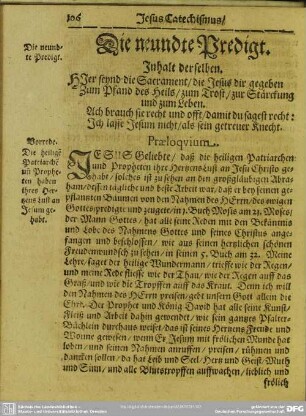 106
Jesus Catechismus/
Die neundte Predigt.
Die neund-
te Predigt.
Inhalt derselben.
HJer seynd die Sacrament/ die Jesus dir gegeben
Zum Pfand des Heils/ zum Trost/ zur Stärckung
und zum Leben.
Ach brauch sie recht und offt/ damit du sagest recht:
Jch lasse Jesum nicht/ als sein getreuer Knecht.
Præloquium.
Vorrede.
Die heilige
Patriarchē
uñ Prophe-
ten haben
ihres Her-
zens Lust an
Jesum ge-
habt.
JESUS Geliebte/ daß die heiligen Patriarchen
und Propheten ihre Herzenslust an Jesu Christo ge-
habt/ solches ist zu sehen an den großgläubigen Abra-
ham/ dessen tägliche und beste Arbeit war/ daß er bey seinen ge-
pflanzten Bäumen von den Nahmen des HErrn/ des ewigen
Gottes prediget und zeuget/ im 1. Buch Mosis am 21. Moses/
der Mann Gottes/ hat alle seine Reden mit den Bekäntnis
und Lobe des Nahmens Gottes und seines Christus ange-
fangen und beschlossen/ wie aus seinen herzlichen schönen
Freudenwundsch zu sehen/ in seinen 5. Buch am 32. Meine
Lehre/ saget der heilige Wundermann/ trieffe wie der Regen/
und meine Rede fliesse wie der Thau/ wie der Regen auff das
Graß/ und wie die Tropffen auff das Kraut. Denn ich will
den Nahmen des HErrn preisen/ gebt unsern Gott allein die
Ehre. Der Prophet und König David hat alle seine Kunst/
Fleiß und Arbeit dahin gewendet/ wie sein ganzes Psalter-
Büchlein durchaus weiset/ das ist seines Herzens Freude und
Wonne gewesen/ wenn Er Jesum mit frölichen Munde hat
loben/ und seinen Nahmen anruffen/ preisen/ rühmen und
dancken sollen/ da hat Leib und Seel/ Herz und Geist/ Muth
und Sinn/ und alle Blutstropffen auffwachen/ lieblich und
frölich